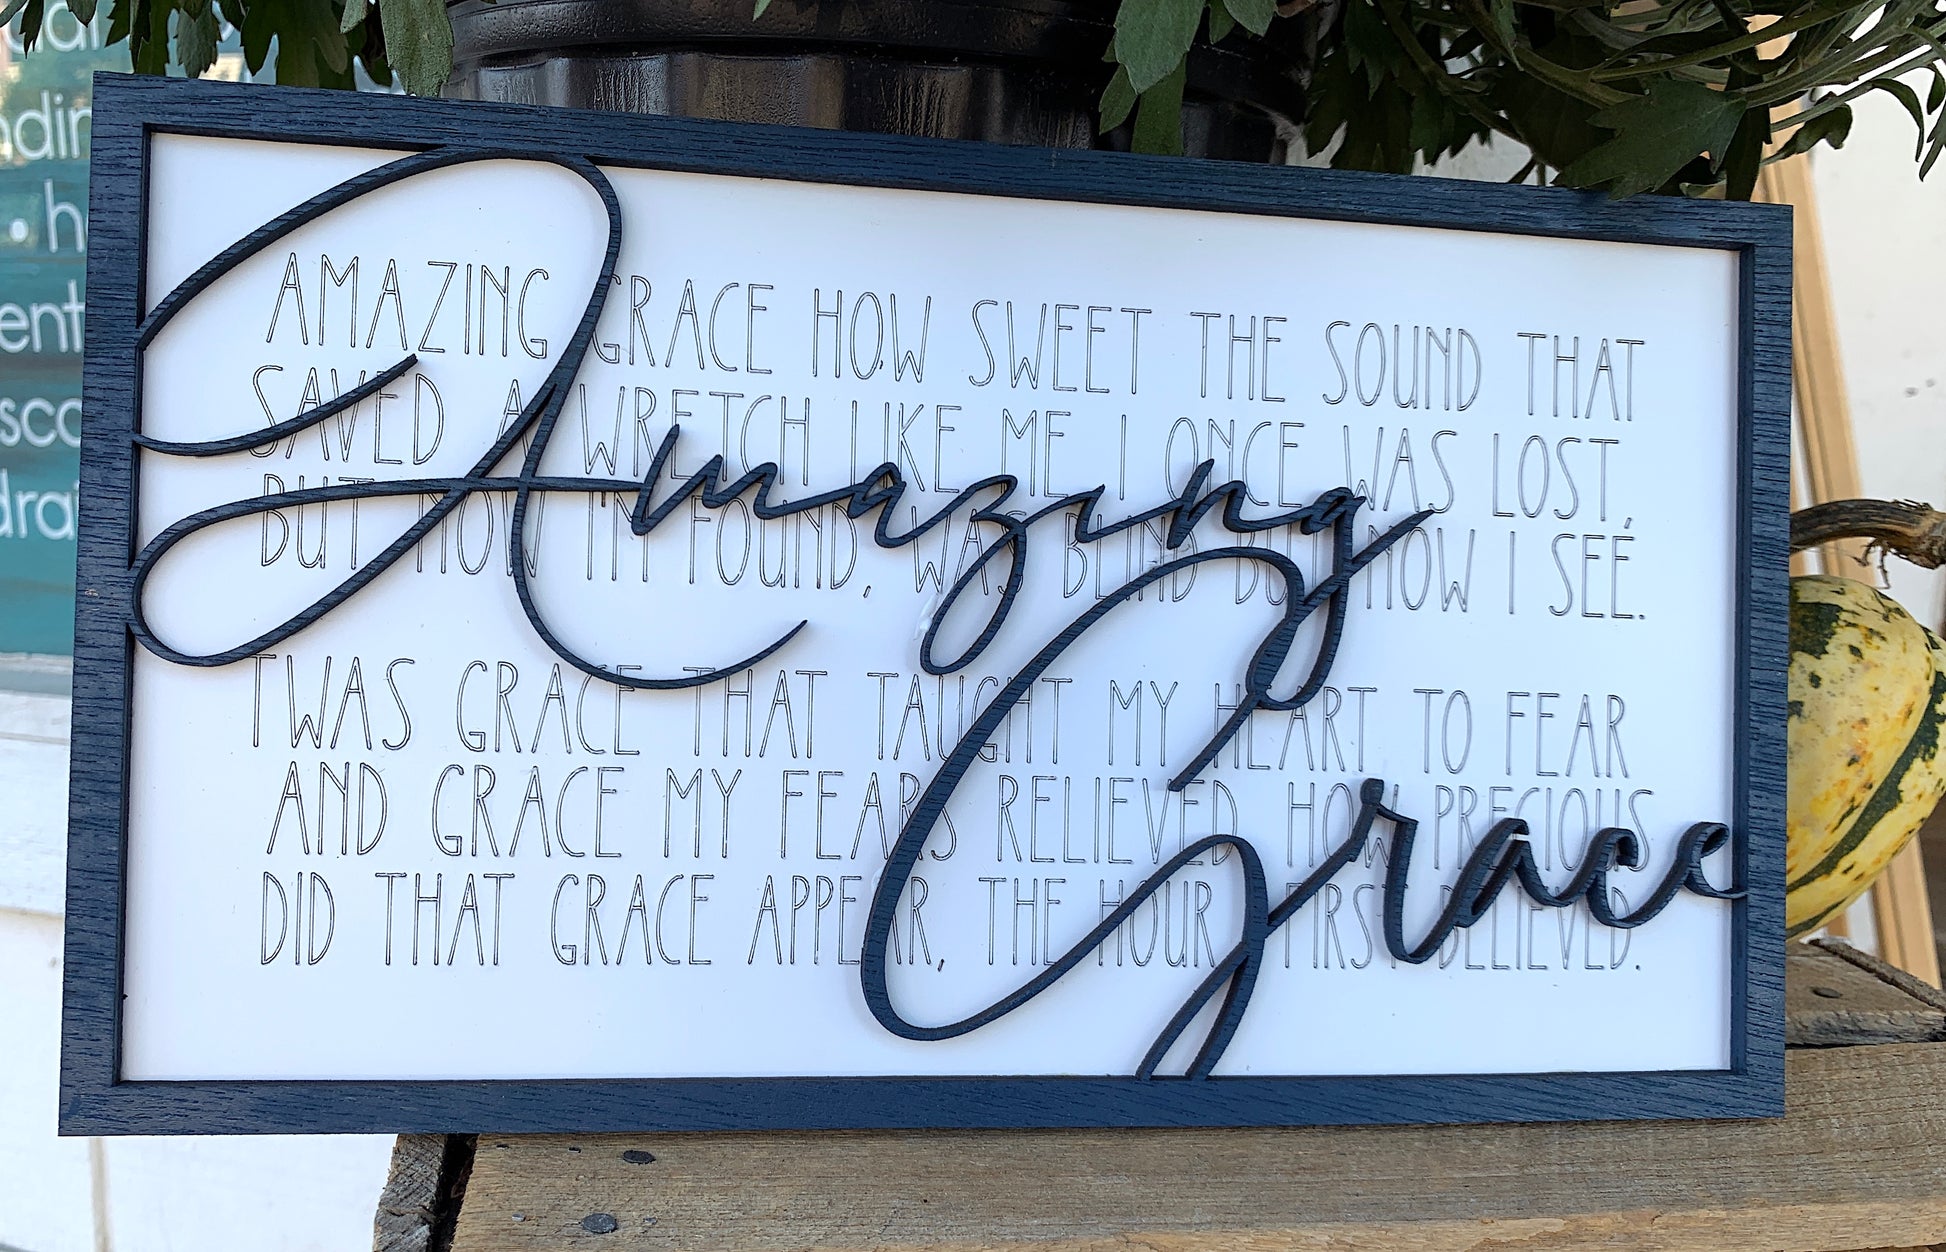 Amazing
Grace
AMAZING GRACE HOW SWEET THE SOUND THAT
SAVED A WRETCH LIKE ME I ONCE WAS LOST,
BUT NOW I'M FOUND, WAS BLIND BUT NOW I SEE.
TWAS GRACE THAT TAUGHT MY HEART TO FEAR
AND GRACE MY FEARS RELIEVED HOW PRECIOUS
DID THAT GRACE APPEAR, THE HOUR I FIRST BELIEVED.